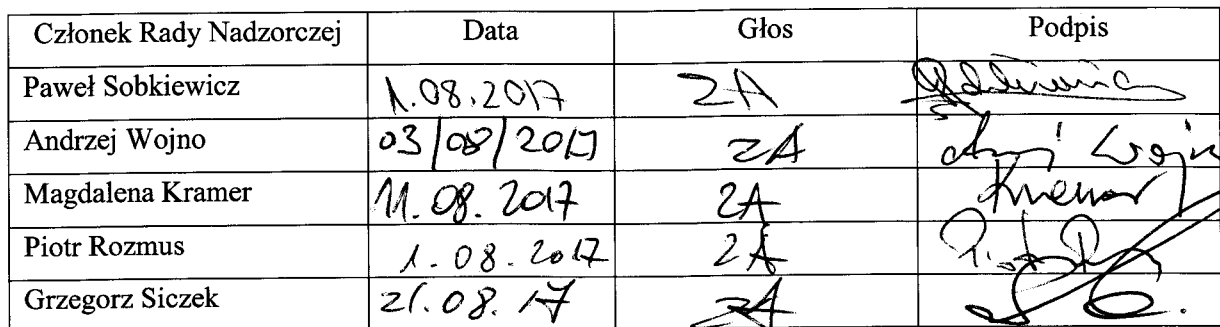 Członek Rady Nadzorczej Data Głos Podpis
Paweł Sobkiewicz 1.08.2017 ZA
Andrzej Wojno 03/08/2017 ZA
Magdalena Kramer 11.08.2017 ZA Kramer
Piotr Rozmus 1.08.2017 ZA
Grzegorz Siczek 21.08.17 ZA